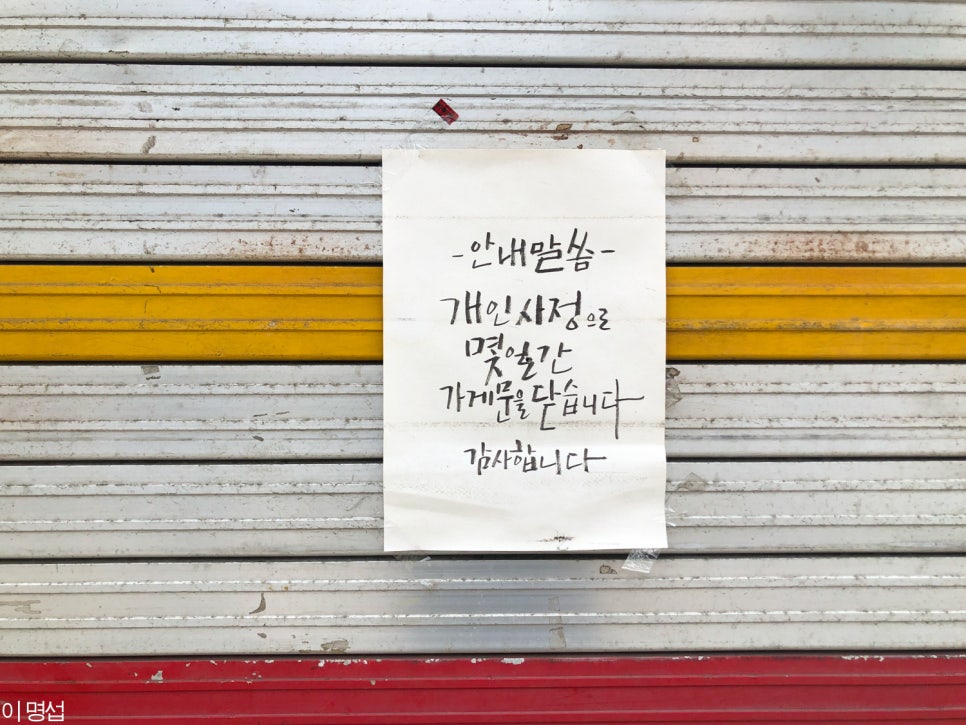 -안내말씀-
개인사정으로
몇일간
가게문을 닫습니다
감사합니다
이명섭